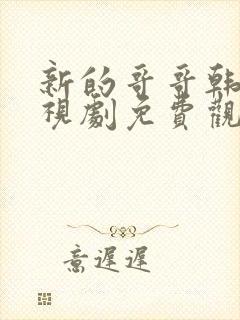 新的哥哥韩
視劇免費觀
意遲遲